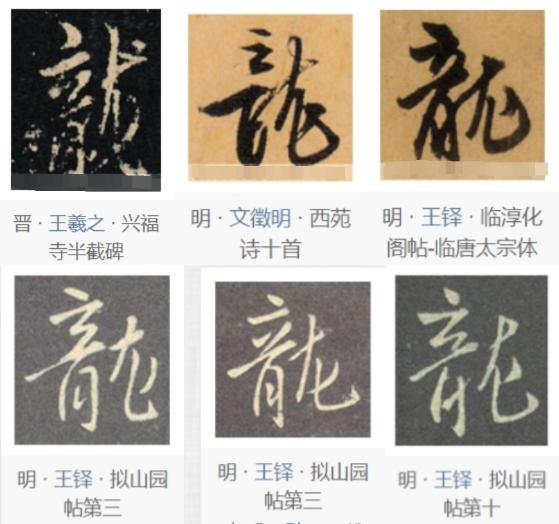 龍
龍
龍
晋·王羲之·兴福
寺半截碑
明·文徵明·西苑
诗十首
明·王铎·临淳化
阁帖-临唐太宗体
龍
龍
龍
明·王铎·拟山园
帖第三
明·王铎·拟山园
帖第三
明·王铎·拟山园
帖第十